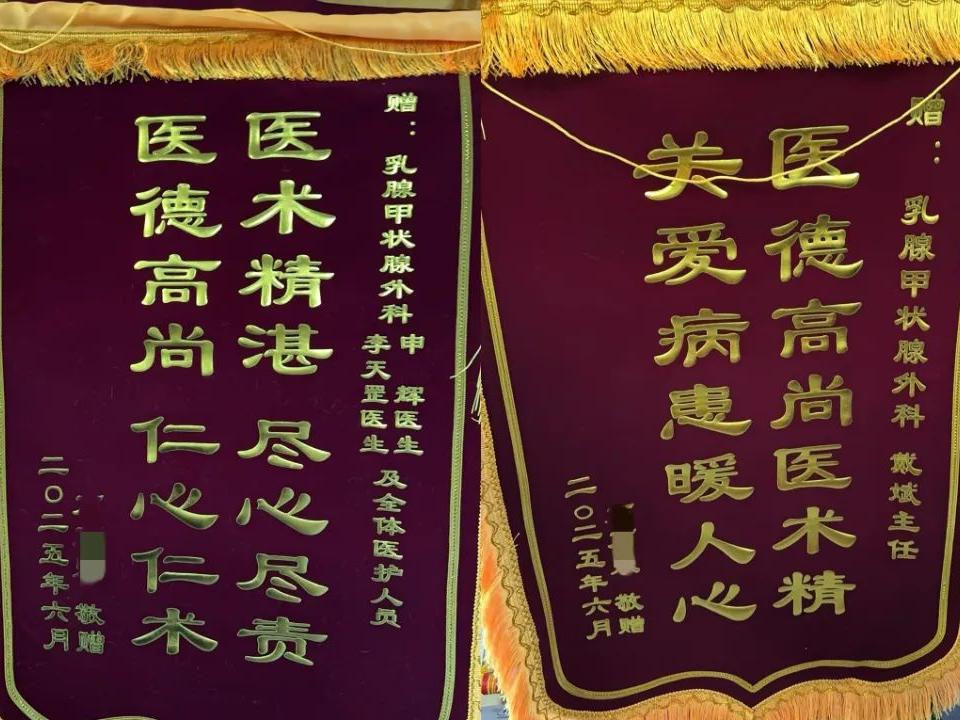 赠：乳腺甲状腺外科 申辉医生
李天罡医生 及全体医护人员
医术精湛 尽心尽责
医德高尚 仁心仁术
敬赠
二〇二五年六月
赠：乳腺甲状腺外科 戴斌主任
医德高尚医术精
关爱病患暖人心
敬赠
二〇二五年六月